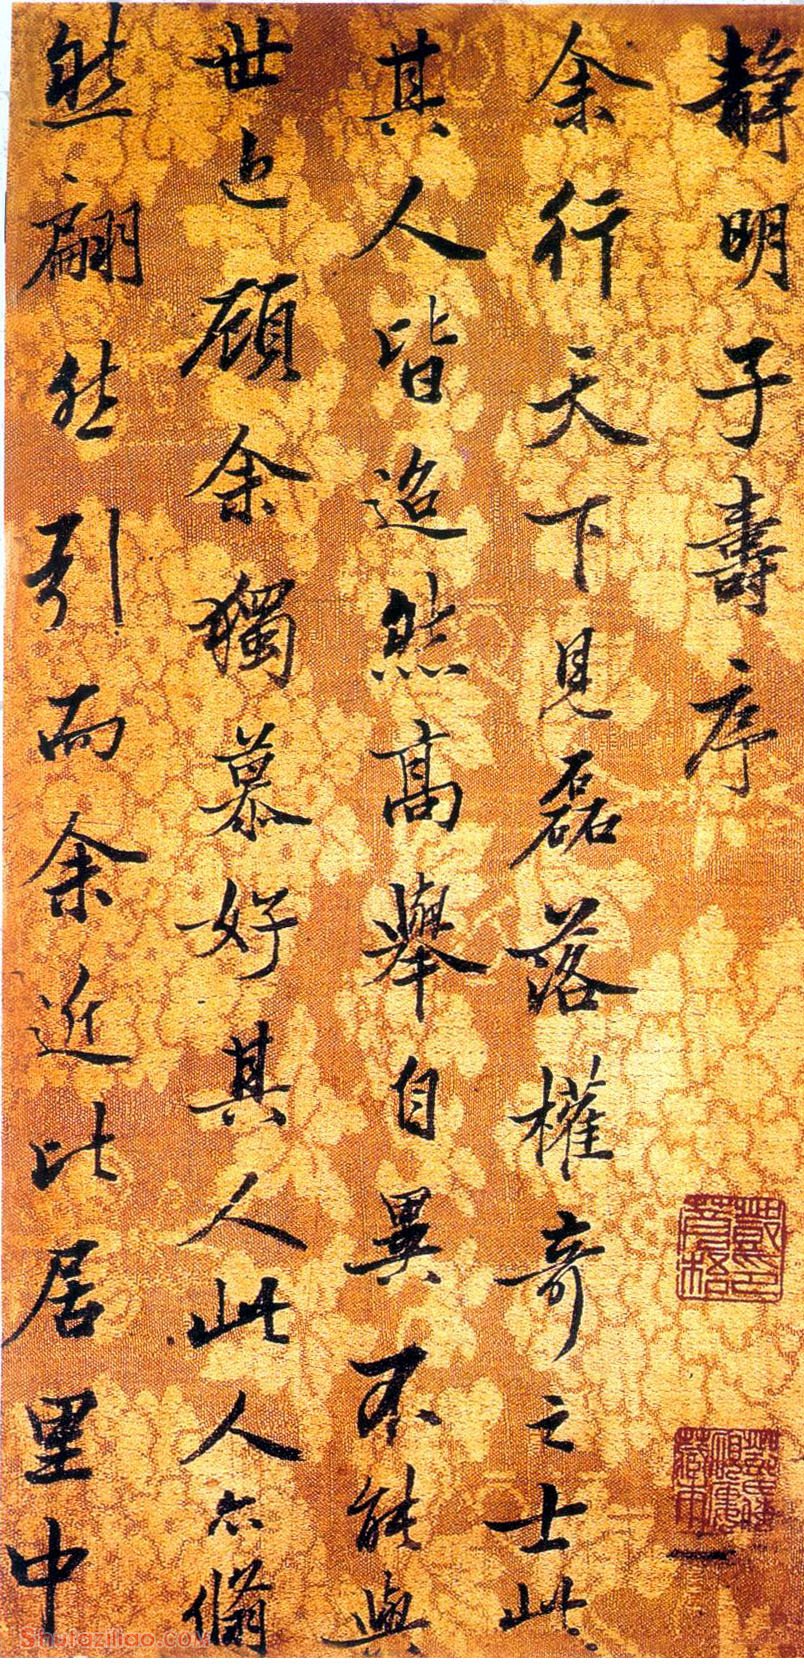 靜明子壽序
余行天下見磊落權奇之士此
其人皆迢然高舉自異不能與
世顧余獨慕好其人此人亦
然翩然引而余近比居里中
一
Shufaziliao.com